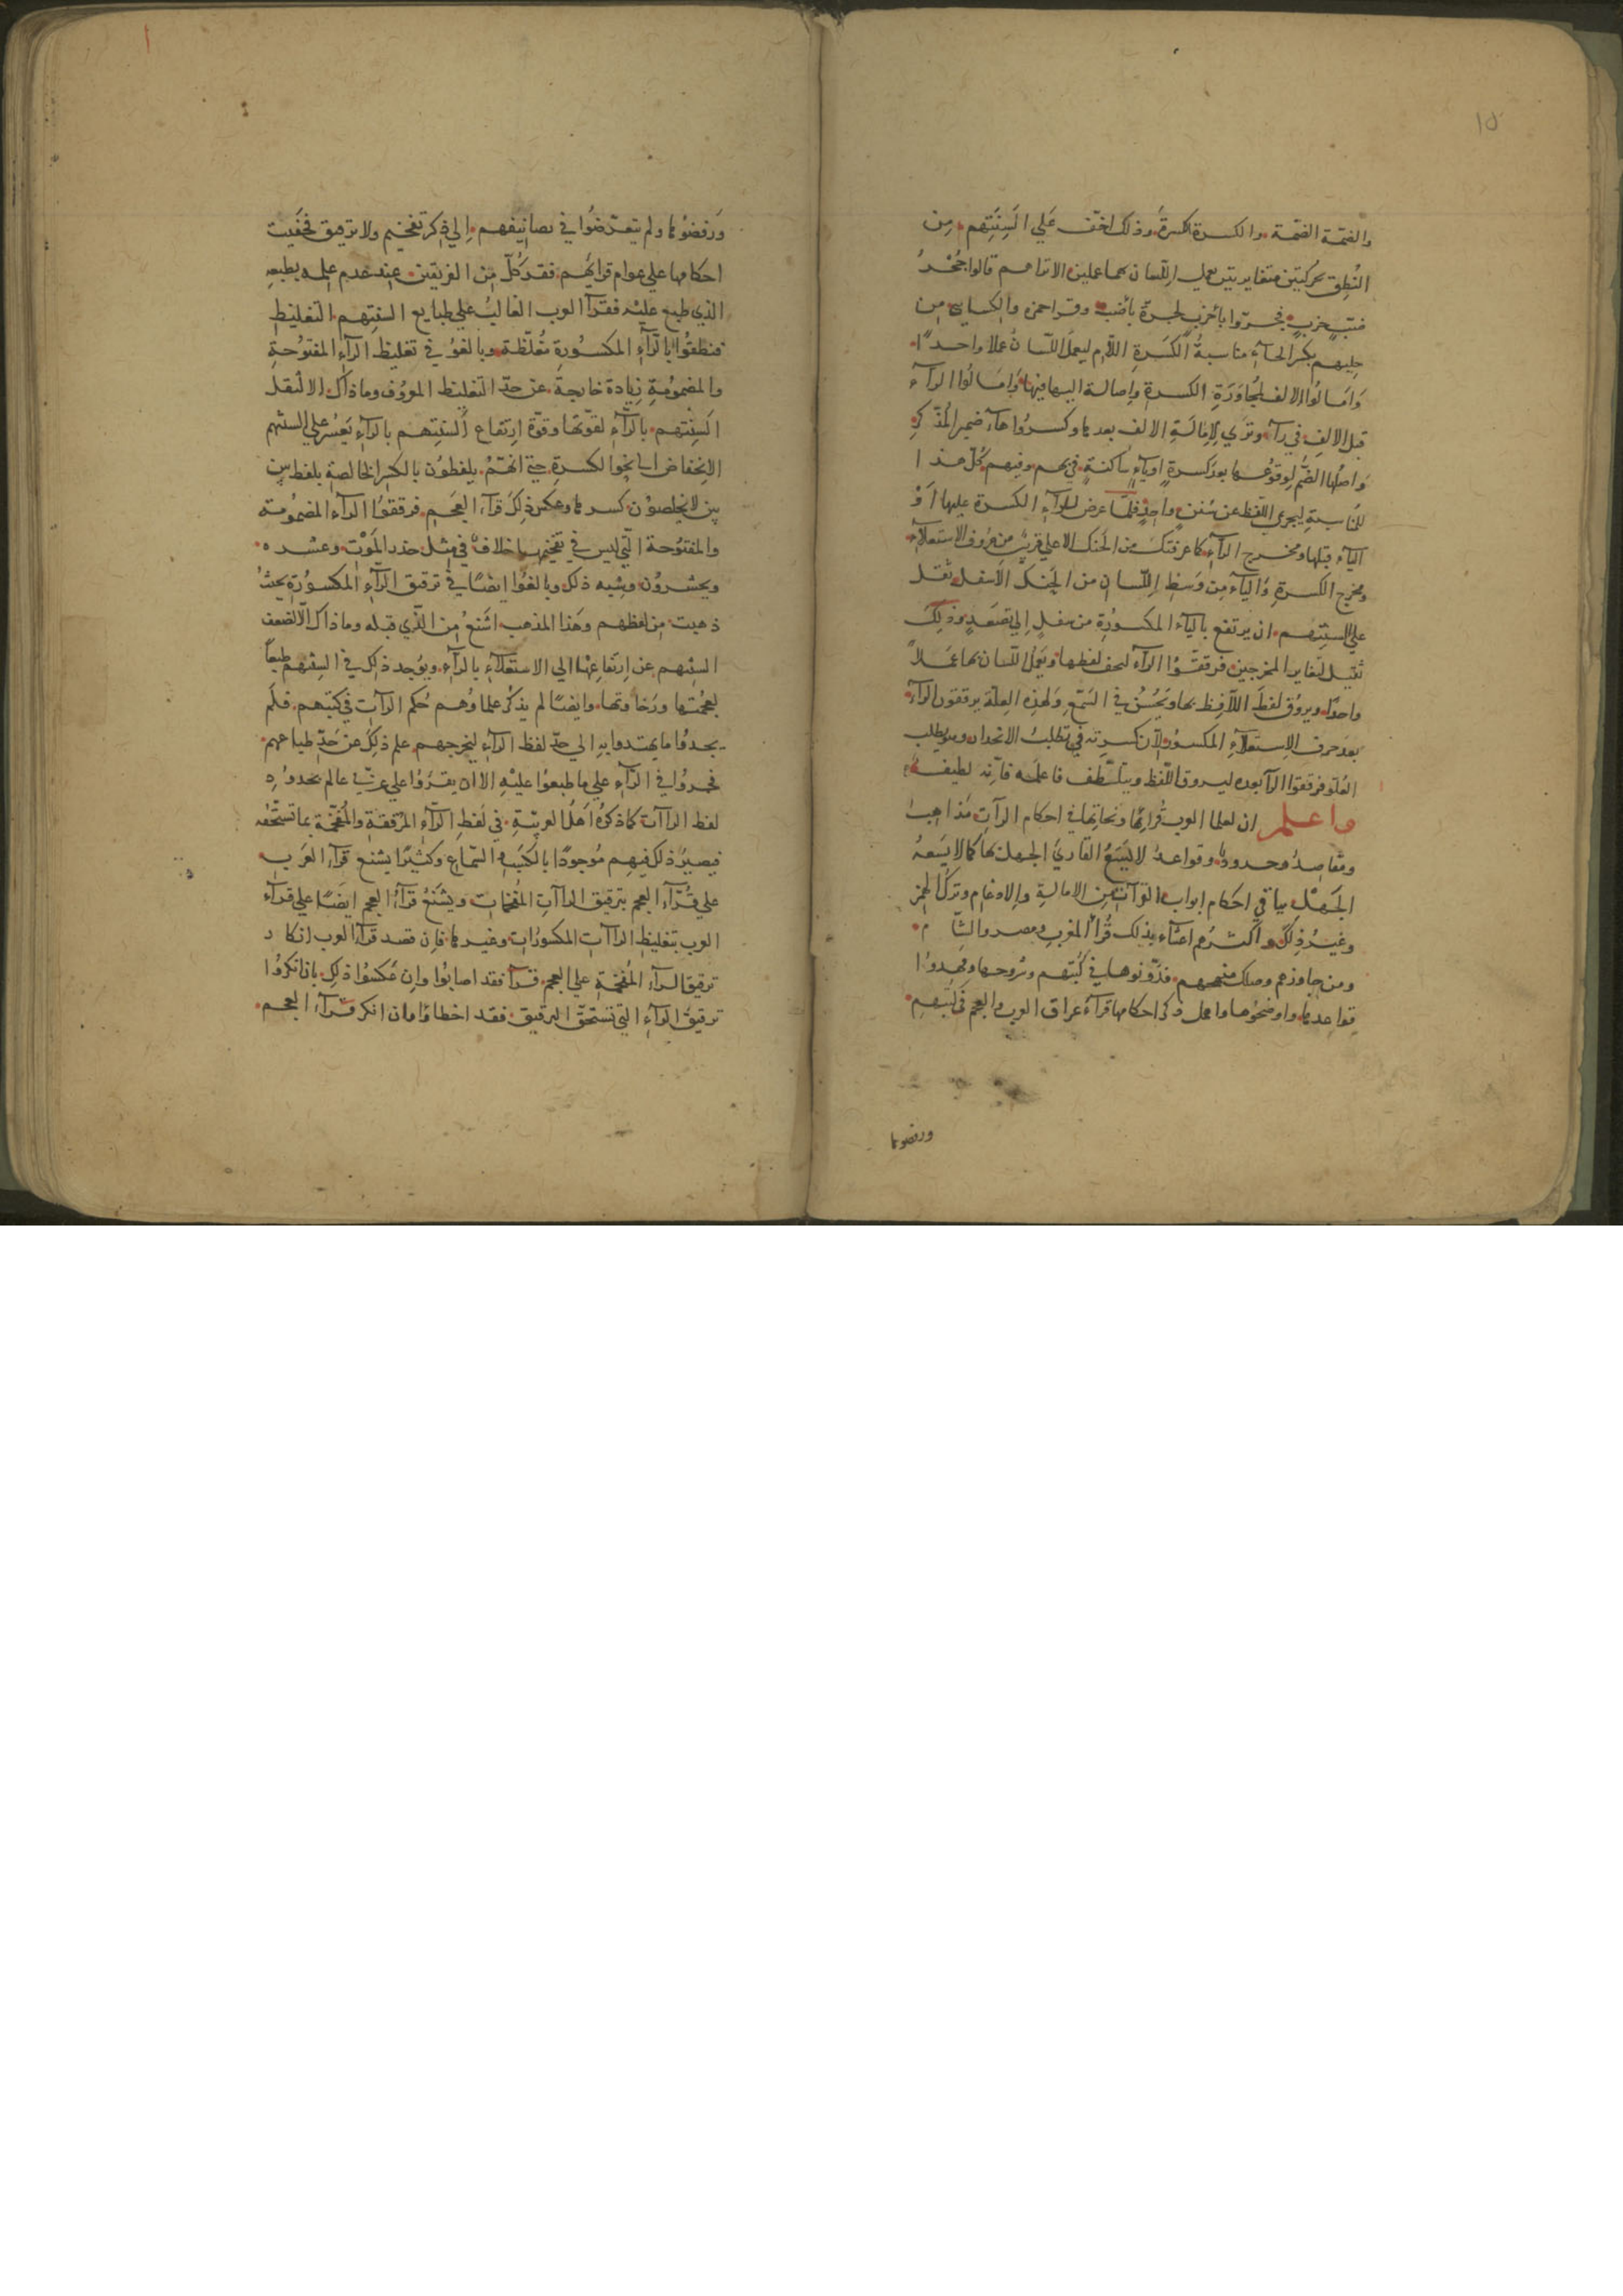 ١٥
والضمّة الضمّة والكسرة الكسرة وذلك اخف عَلي الَسِنَتِهم مِن
النُطِق بحركتين متغايرتين يعمل اللسان بهما عملين الا تراهم قالوا جُحْرُ
ضبٍّ خربٍ فجروا باء خربٍ لمجاورة باء ضب وقرا حمزة والكسايي من
حِليهم بكسر الحآء مناسبةً لكَسَرةِ اللآم ليعملَ اللسانُ عملا واحدًا
وَامَالُوا الالف لمُجاوَرَةِ الكسرة واِصالة اليها فيها وَامَالُوا الرآء
قبل الالِفِ في رآء وترَي لاِمَالَةِ الالف بعدها وكسرُوا هآء ضمير المُذكرِ
وَاصلُها الضَّم لِوقوُعها بعدَ كسرةٍ اويآءٍ سَاكنةٍ في بهم وفيهم كُلّ هذا
للمُنَاسَبةِ ليجري اللّفظ عن سُنَنٍ واحِدٍ فلمّا عرض للرآءِ الكسرة عليها اَوْ
اليآء قبلها ومخرج الرآء كما عرفتكَ من الحَنك الاعلي قريبٌ من حُروف الاستعلآء
ومخرج الكسرةِ وَاليآء مِن وَسَطِ اللّسانِ من الحَنكِ الاَسفل ثقل
علي السِنتِهم ان يرتفع باليآء المكسوُرةِ من سفلٍ اِلي تصَعدٍ وذلِكَ
ثقيل لتغاير المخرجين فرققُوُا الرآء ليخف لفظها ويَعمل اللّسان بهما عَمَلاً
واحدًا ويروُق لفظَ اللآفِظ بها ويَحْسُنَ في السَمْعِ وَلهذِهِ العِلّة يرققون الرآء
بعَدَ حرف الاِستعلآءِ المكسوُر لآنّ كسرته في تطلب الانحدار وهو يطلب
العُلو فرققوا الرآ بعده ليروق اللّفظ ويتلطف فاعلمه فاّنه لطيفة
واعلم ان لعلما العرب قُرائها ونحاتِها في احكام الرآتِ مَذاهِبا
ومقاصِدُ وحدودٌ وقواعدُ لا يَسَعُ القاري الجهل بها كما لا يَسَعهُ
الجَهلُ بباقي احكام ابواب القرآت مِن الامالةِ والادغام وتركُ الهمز
وغَيرُ ذِلك واكثرُهم اعتنآء بذلك قُرآ المغربِ ومصر والشام
ومن جاورهم وسلك منهجهم فدَوّنوها في كُتبهم وشروحها ومهدوُا
قواعِدها واوضحُوها واهمل ذكر احكامها قرآءُ عراق العرب والعجم في كتبهِم
ورفضوُها
وَرفضوُها ولم يتعرّضوُا في تصانيفهم اِلي ذِكر تفخيم ولا ترقيق فخفيت
احكامها علي عوام قرائهم فقرأ كلّ مِن الفريقين عِند عدم علمه بطبعهِ
الذي طبع عليْه فقرآ العرب الغالبُ علي طبايع السنتِهم التغليظ
فنطقوُا بالرآءِ المكسُورةِ مُغلّظة وبالغوُ في تغليظ الرآءِ المفتوُحةِ
والمضموُمةِ زيادة خارجة عن حدّ التغليظ المعروُف وما ذاك الا لثقل
اَلسِنتهم بالرّآءِ لقوّتها وقوّة ارتفاع ألسنتِهم بالرآءِ يَعسُر علي السنتهم
الاِنخفاض بها نحو الكسرة حتي انّهمْ يلفظوُن بالكسرِ الخالصةِ بلفظ بين
بين لا يخلصوُن كسرها وعكسَ ذِلكَ قرآء العجَم فرققوُا الرآء المضموُمة
والمفتوُحة التّي ليس في تفخيمها خلافٌ في مِثل حذر الموْت وعشره
ويحشروُن وشبه ذلك وبالغوُا ايضًا في ترقيق الرّآءِ المكسوُرةِ بحيثُ
ذهبت من لفظهم وهَذا المذهب اشَنعُ مِن الذّي قبله وما ذاك الّا لضعف
السِنتهم عن ارتفاعِهَا الي الاستعلآءِ بالرآء ويوُجد ذلِك في السِنتهم طبعاً
لعجمتها ورَخاوتها وايضًا لم يذكُر علماوُهم حُكم الرآت في كتبهم فلَم
يجدوُا ما يهتدوا بهِ الي حدّ لفظ الرآءِ ليخرجهم علم ذلِكَ عن حَدّ طباعهم
فجروُا في الرآءِ علي ما طبعوُا عليْهِ الا ان يقرَؤُا علي عربيّ عالم بحدوُدِه
لفظ الراآت كما ذكرهُ اَهلُ العربيّةِ في لفظِ الرآءِ المرَققةِ والمُفخّمة بما تستحقه
فيصيُر ذلك فيهم موُجودًا بالكتب والسّماع وكثيرًا يشنع قرآء العَرب
علي قُرّآء العجم بترقيق الراآتِ المُفخمات ويشنعُ قرآءُ العجم ايضًا علي قرآء
العرب بتغليظ الراآت المكسوُرات وغيرها فاِن قصد قرآء العرب انكار
ترقيق الرآءِ المُفخّمةِ علي العجم قرآ فقد اصابوُا واِن عَكسوُا ذلِك بان انكروُا
ترقيق الرآءِ التي تستحقّ الترقيق فقد اخطاؤا وان انكر قرآء العجم